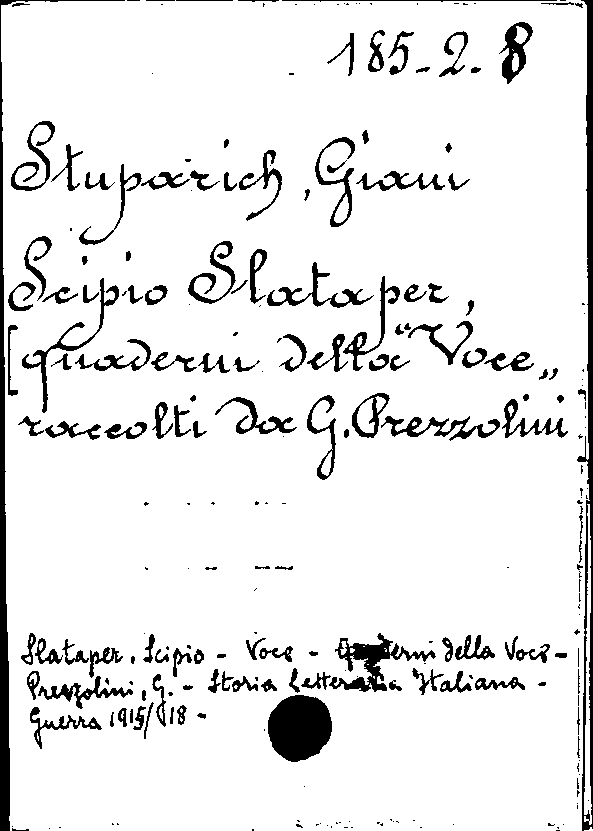 185-2-8
Stuparich, Giani
Scipio Slataper,
[quaderni della "Voce"
raccolti da G. Prezzolini
Slataper, Scipio - Voce - Quaderni della Voce -
Prezzolini, G. - Storia Letteraria Italiana -
Guerra 1915/18 -